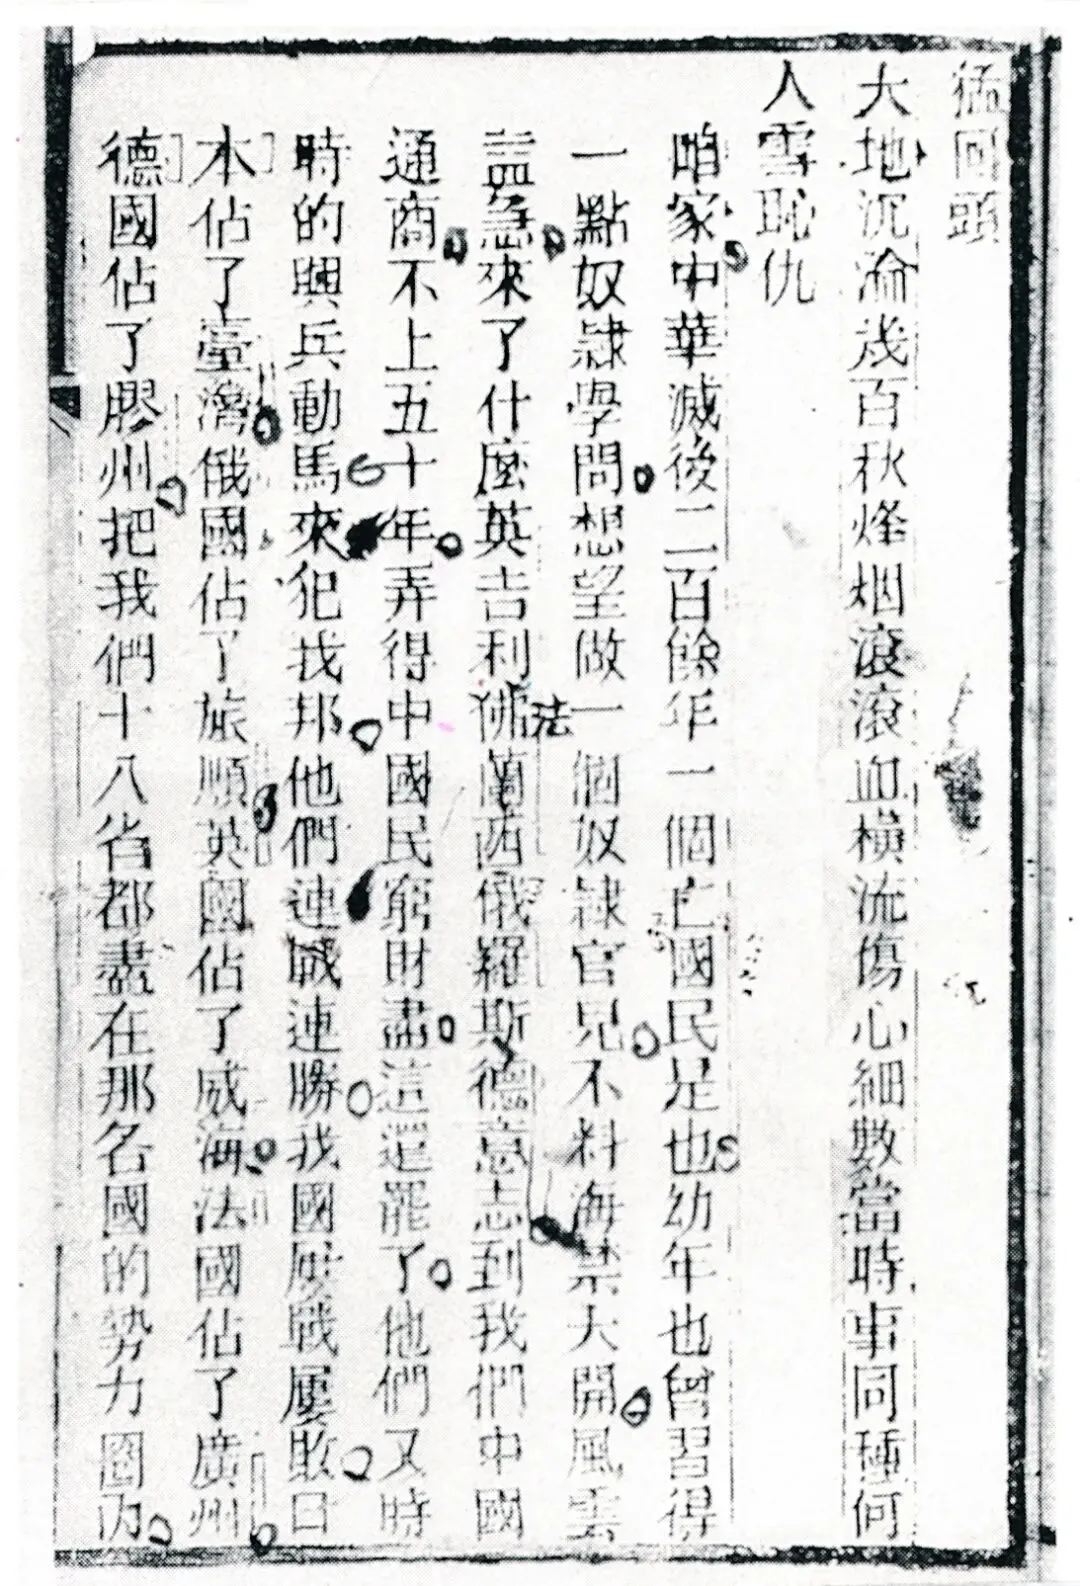 猛回頭
大地沉淪幾百秋烽烟滾滾血橫流傷心細數當時事同種何
人雪恥仇
咱家中華滅後二百餘年一個亡國民是也幼年也曾習得
一點奴隸學問想望做一個奴隸官兒不料海禁大開風雲
益急來了什麼英吉利佛蘭西俄羅斯德意志到我們中國
法
通商不上五十年弄得中國民窮財盡這還罷了他們又時
時的興兵動馬來犯我邦他們連戰連勝我國屢戰屢敗日
本佔了臺灣俄國佔了旅順英國佔了威海法國佔了廣州
德國佔了膠州把我們十八省都盡在那各國的勢力圈內